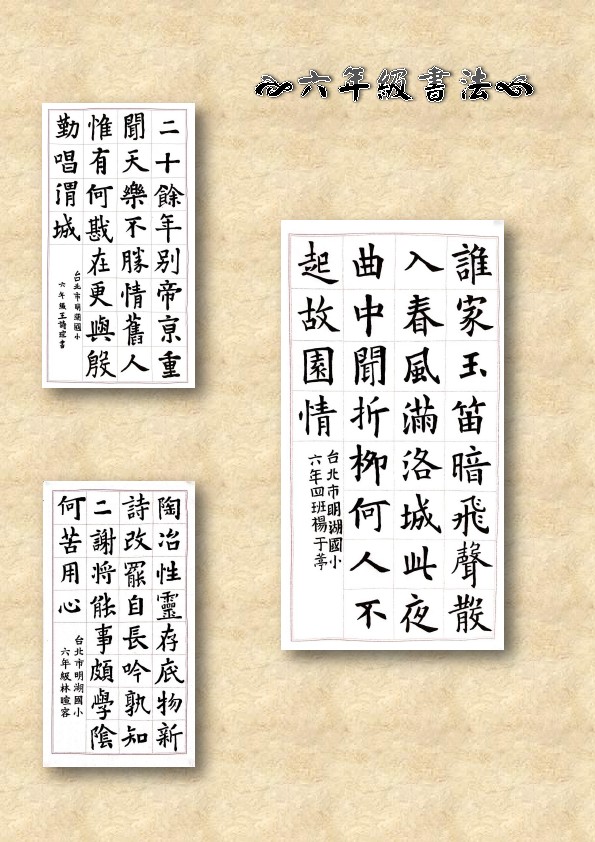 六年級書法
二十餘年別帝京重
聞天樂不勝情舊人
惟有何戡在更與殷
勤唱渭城
台北市明湖國小
六年級王詩書
誰家玉笛暗飛聲散
入春風滿洛城此夜
曲中聞折柳何人不
起故園情
台北市明湖國小
六年四班楊于葶
陶冶性靈存底物新
詩改罷自長吟孰知
二謝將能事頗學陰
何苦用心
台北市明湖國小
六年級林暄容